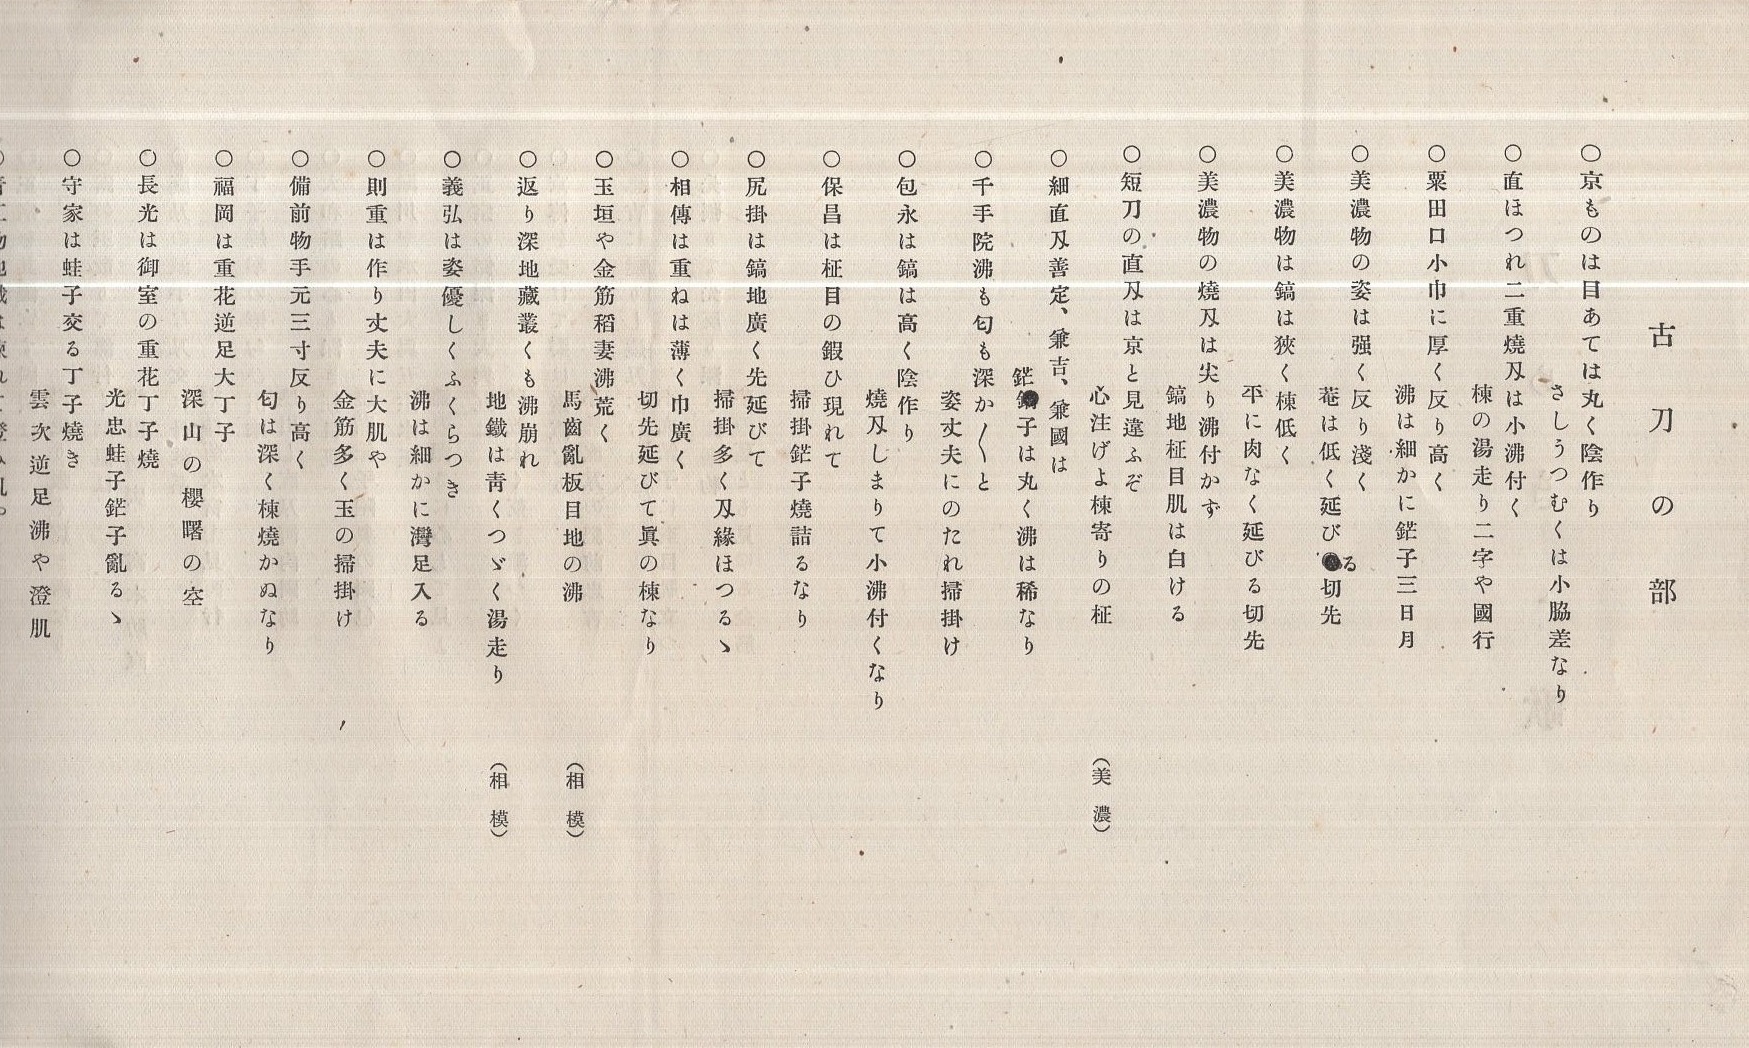 古刀の部
○京ものは目あては丸く陰作り
さしうつむくは小脇差なり
○直ほつれ二重燒刄は小沸付く
棟の湯走り二字や國行
○粟田口小巾に厚く反り高く
沸は細かに鋩子三日月
○美濃物の姿は强く反り淺く
菴は低く延びる切先
○美濃物は鎬は狹く棟低く
平に肉なく延びる切先
○美濃物の燒刄は尖り沸付かず
鎬地柾目肌は白ける
○短刀の直刄は京と見違ふぞ
心注げよ棟寄りの柾
(美濃)
○細直刄善定、兼吉、兼國は
鋩子は丸く沸は稀なり
○千手院沸も匂も深か〱と
姿丈夫にのたれ掃掛け
○包永は鎬は高く陰作り
燒刄しまりて小沸付くなり
○保昌は柾目の鍜ひ現れて
掃掛鋩子燒詰るなり
○尻掛は鎬地廣く先延びて
掃掛多く刄緣ほつるゝ
○相傳は重ねは薄く巾廣く
切先延びて眞の棟なり
○玉垣や金筋稻妻沸荒く
馬齒亂板目地の沸
(相模)
○返り深地藏叢くも沸崩れ
地鐵は靑くつゞく湯走り
(相模)
○義弘は姿優しくふくらつき
沸は細かに灣足入る
○則重は作り丈夫に大肌や
金筋多く玉の掃掛け
○備前物手元三寸反り高く
匂は深く棟燒かぬなり
○福岡は重花逆足大丁子
深山の櫻曙の空
○長光は御室の重花丁子燒
光忠蛙子鋩子亂るゝ
○守家は蛙子交る丁子燒き
雲次逆足沸や澄肌